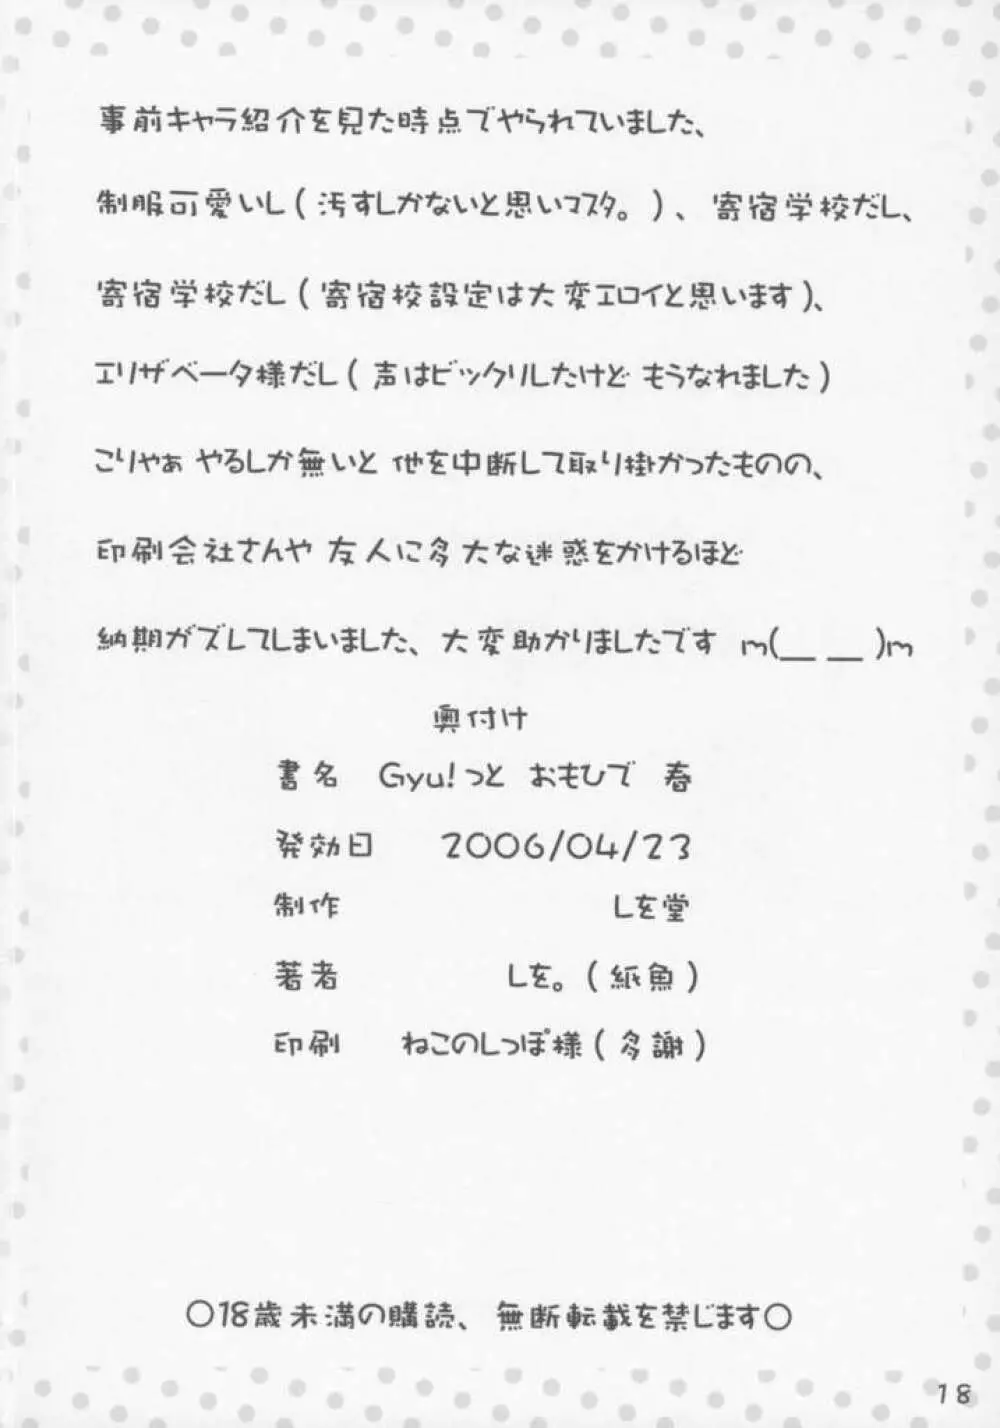 事前キャラ紹介を見た時点でやられていました、
制服可愛いし(汚すしかないと思いマスタ。)、寄宿学校だし、
寄宿学校だし(寄宿校設定は大変エロイと思います)、
エリザベータ様だし(声はビックリしたけど もうなれました)
こりゃぁ やるしか無いと 他を中断して取り掛かったものの、
印刷会社さんや 友人に多大な迷惑をかけるほど
納期がズレてしまいました、大変助かりましたです m(__ __)m
奥付け
書名 Gyu!っと おもひで 春
発効日 2006/04/23
制作 しを堂
著者 しを。(紙魚)
印刷 ねこのしっぽ様(多謝)
○18歳未満の購読、無断転載を禁じます○
18